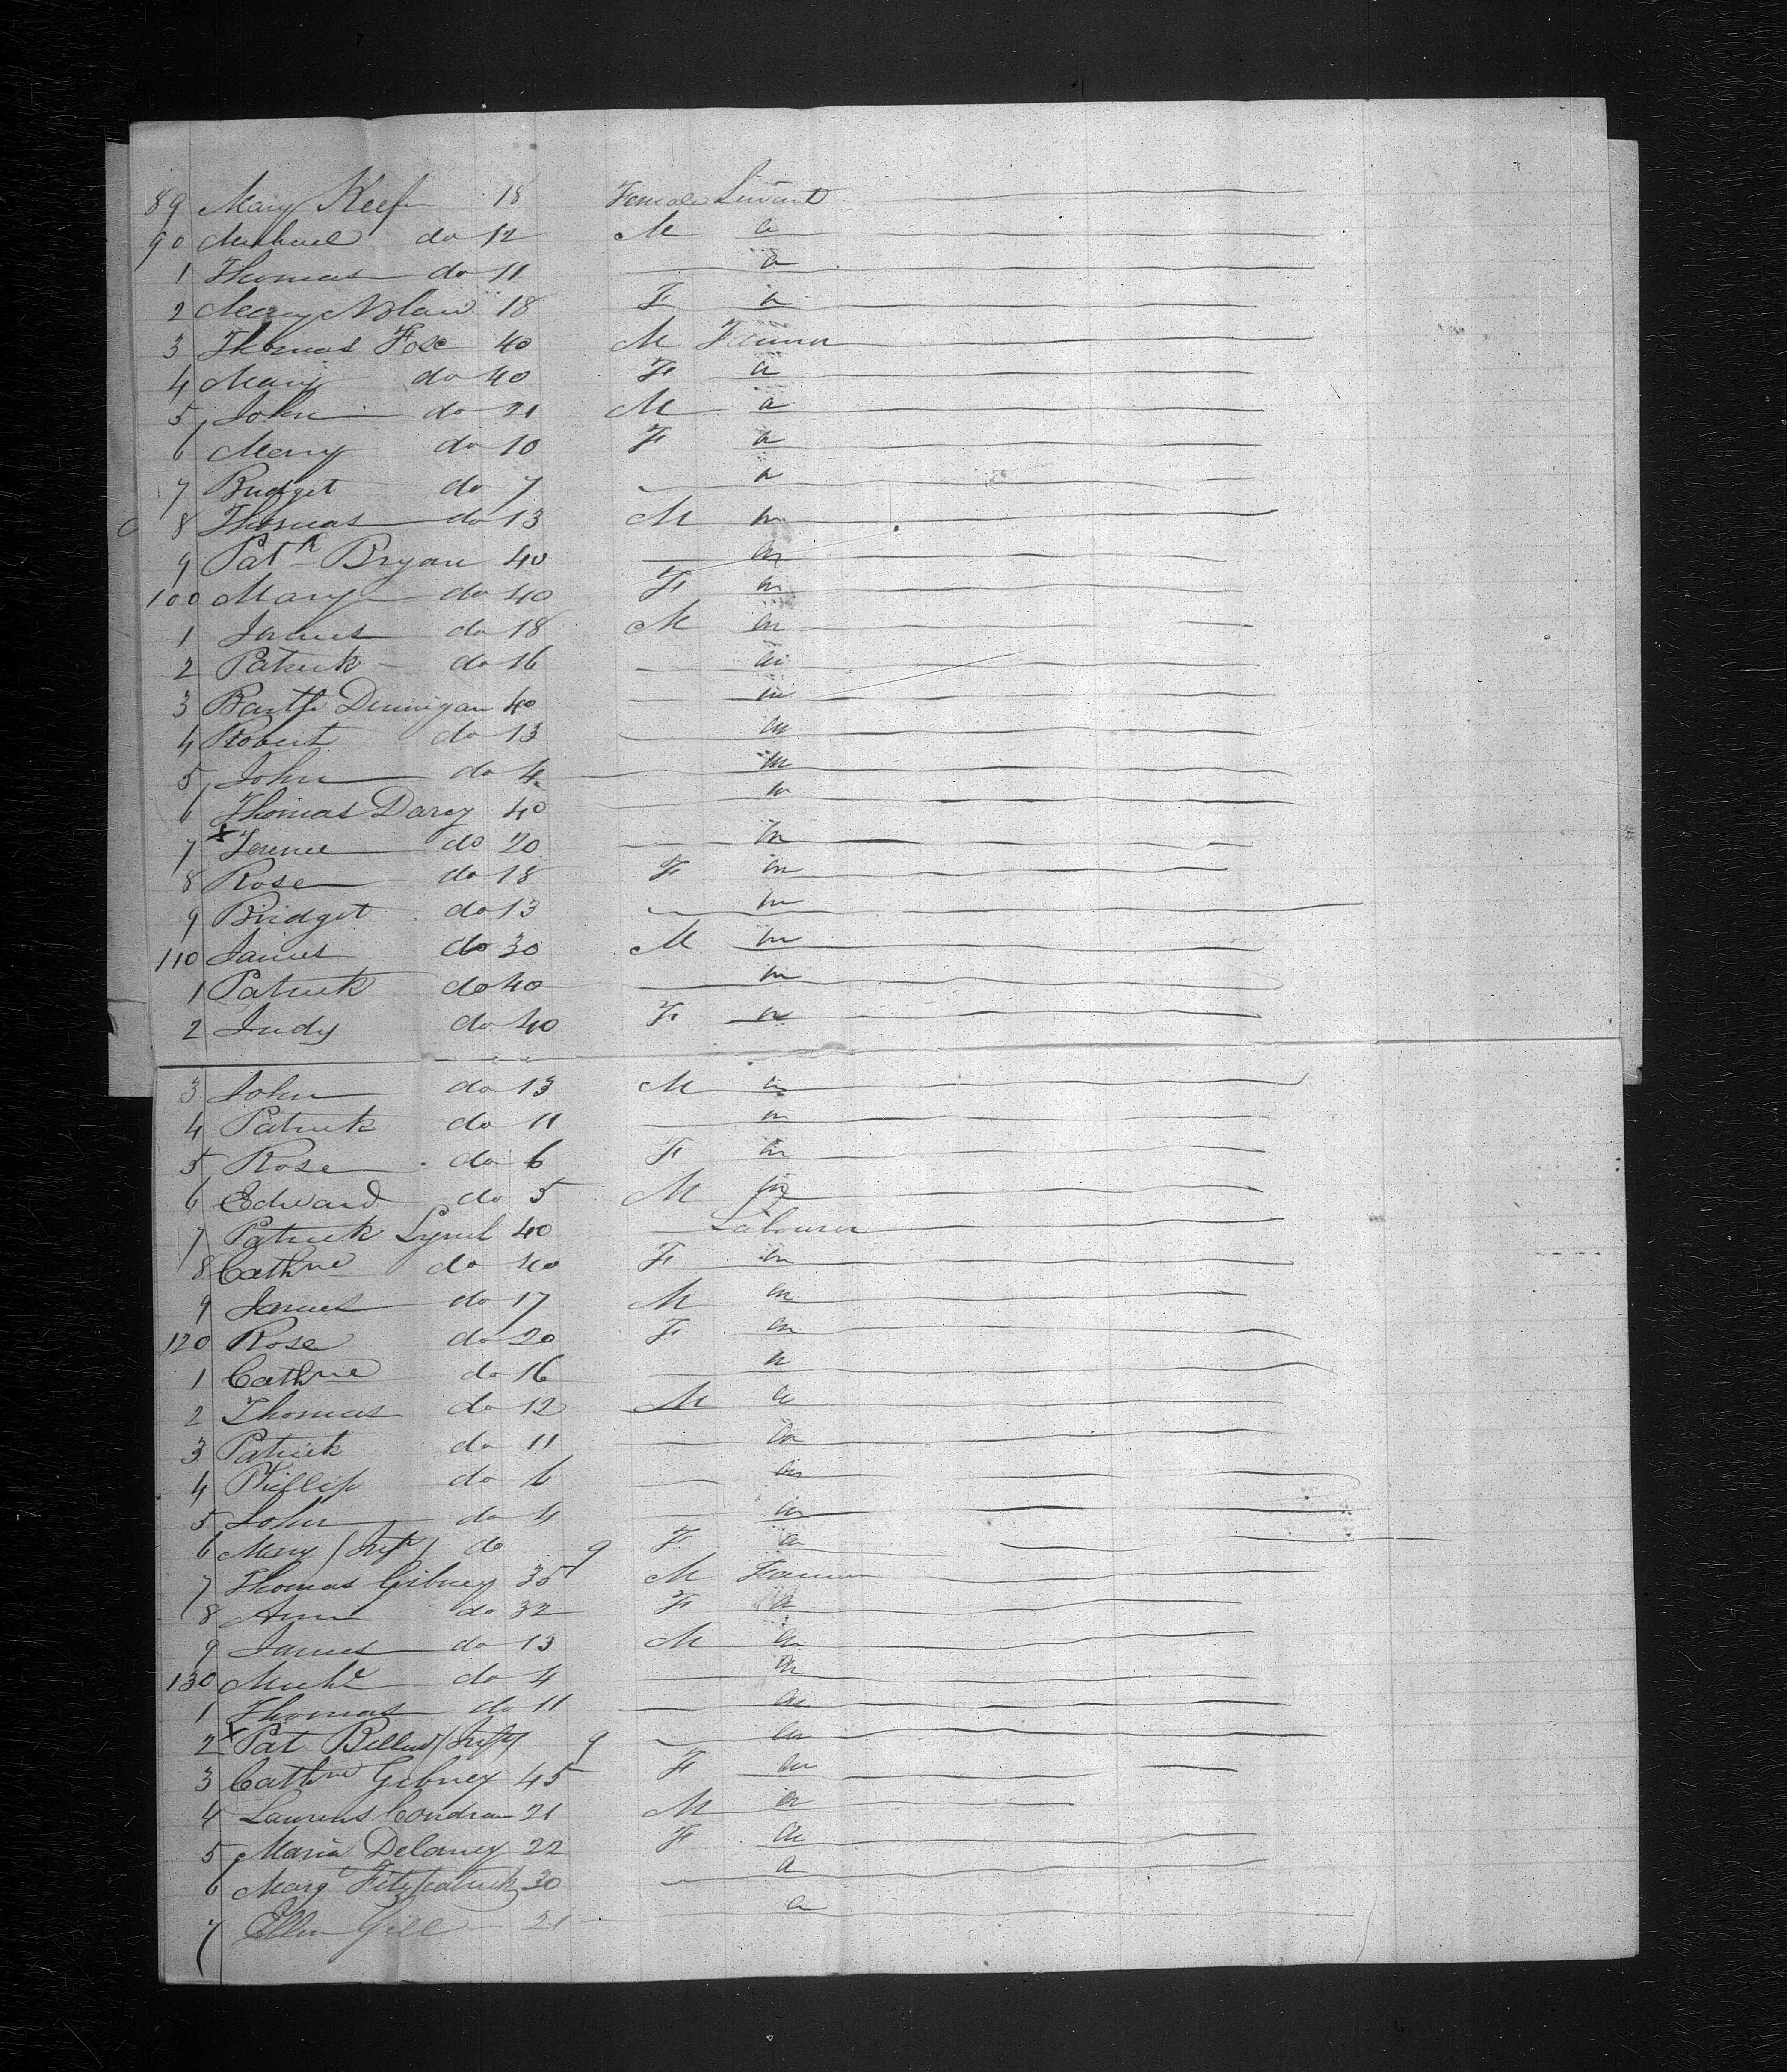 89 Mary Keef 18 Female Servant
90 Michael do 12 M "
1 Thomas do 11 — "
2 Mary Nolan 18 F "
3 Thomas Fox 40 M Farmer
4 Mary do 40 F "
5 John do 21 M "
6 Mary do 10 F "
7 Bridget do 7 — "
8 Thomas do 13 M "
9 Patk Bryan 40 — "
100 Mary do 40 F "
1 James do 18 M "
2 Patrick do 16 — "
3 Barth Dunigan 40 — "
4 Robert do 13 — "
5 John do 4 — "
6 Thomas Darcy 40 — "
7 x Terence do 20 — "
8 Rose do 18 F "
9 Bridget do 13 — "
110 James do 30 M "
1 Patrick do 40 — "
2 Judy do 40 F "
3 John do 13 M "
4 Patrick do 11 — "
5 Rose do 6 F "
6 Edward do 5 M "
7 Patrick Lynch 40 — Labourer
8 Cathne do 40 F "
9 James do 17 M "
120 Rose do 20 F "
1 Cathne do 16 — "
2 Thomas do 12 M "
3 Patrick do 11 — "
4 Phillip do 6 — "
5 John do 4 — "
6 Mary (Inft) do 9 F "
7 Thomas Gibney 35 M Farmer
8 Ann do 32 F "
9 James do 13 M "
130 Michl do 4 — "
1 Thomas do 11 — "
2 x Pat (Inft) 9 — "
3 Cathne Gibney 45 F "
4 Laurens Condran 21 M "
5 Maria Delaney 22 F "
6 Margt Fitzpatrick 30 — "
7 Ellen Gill 21 — "